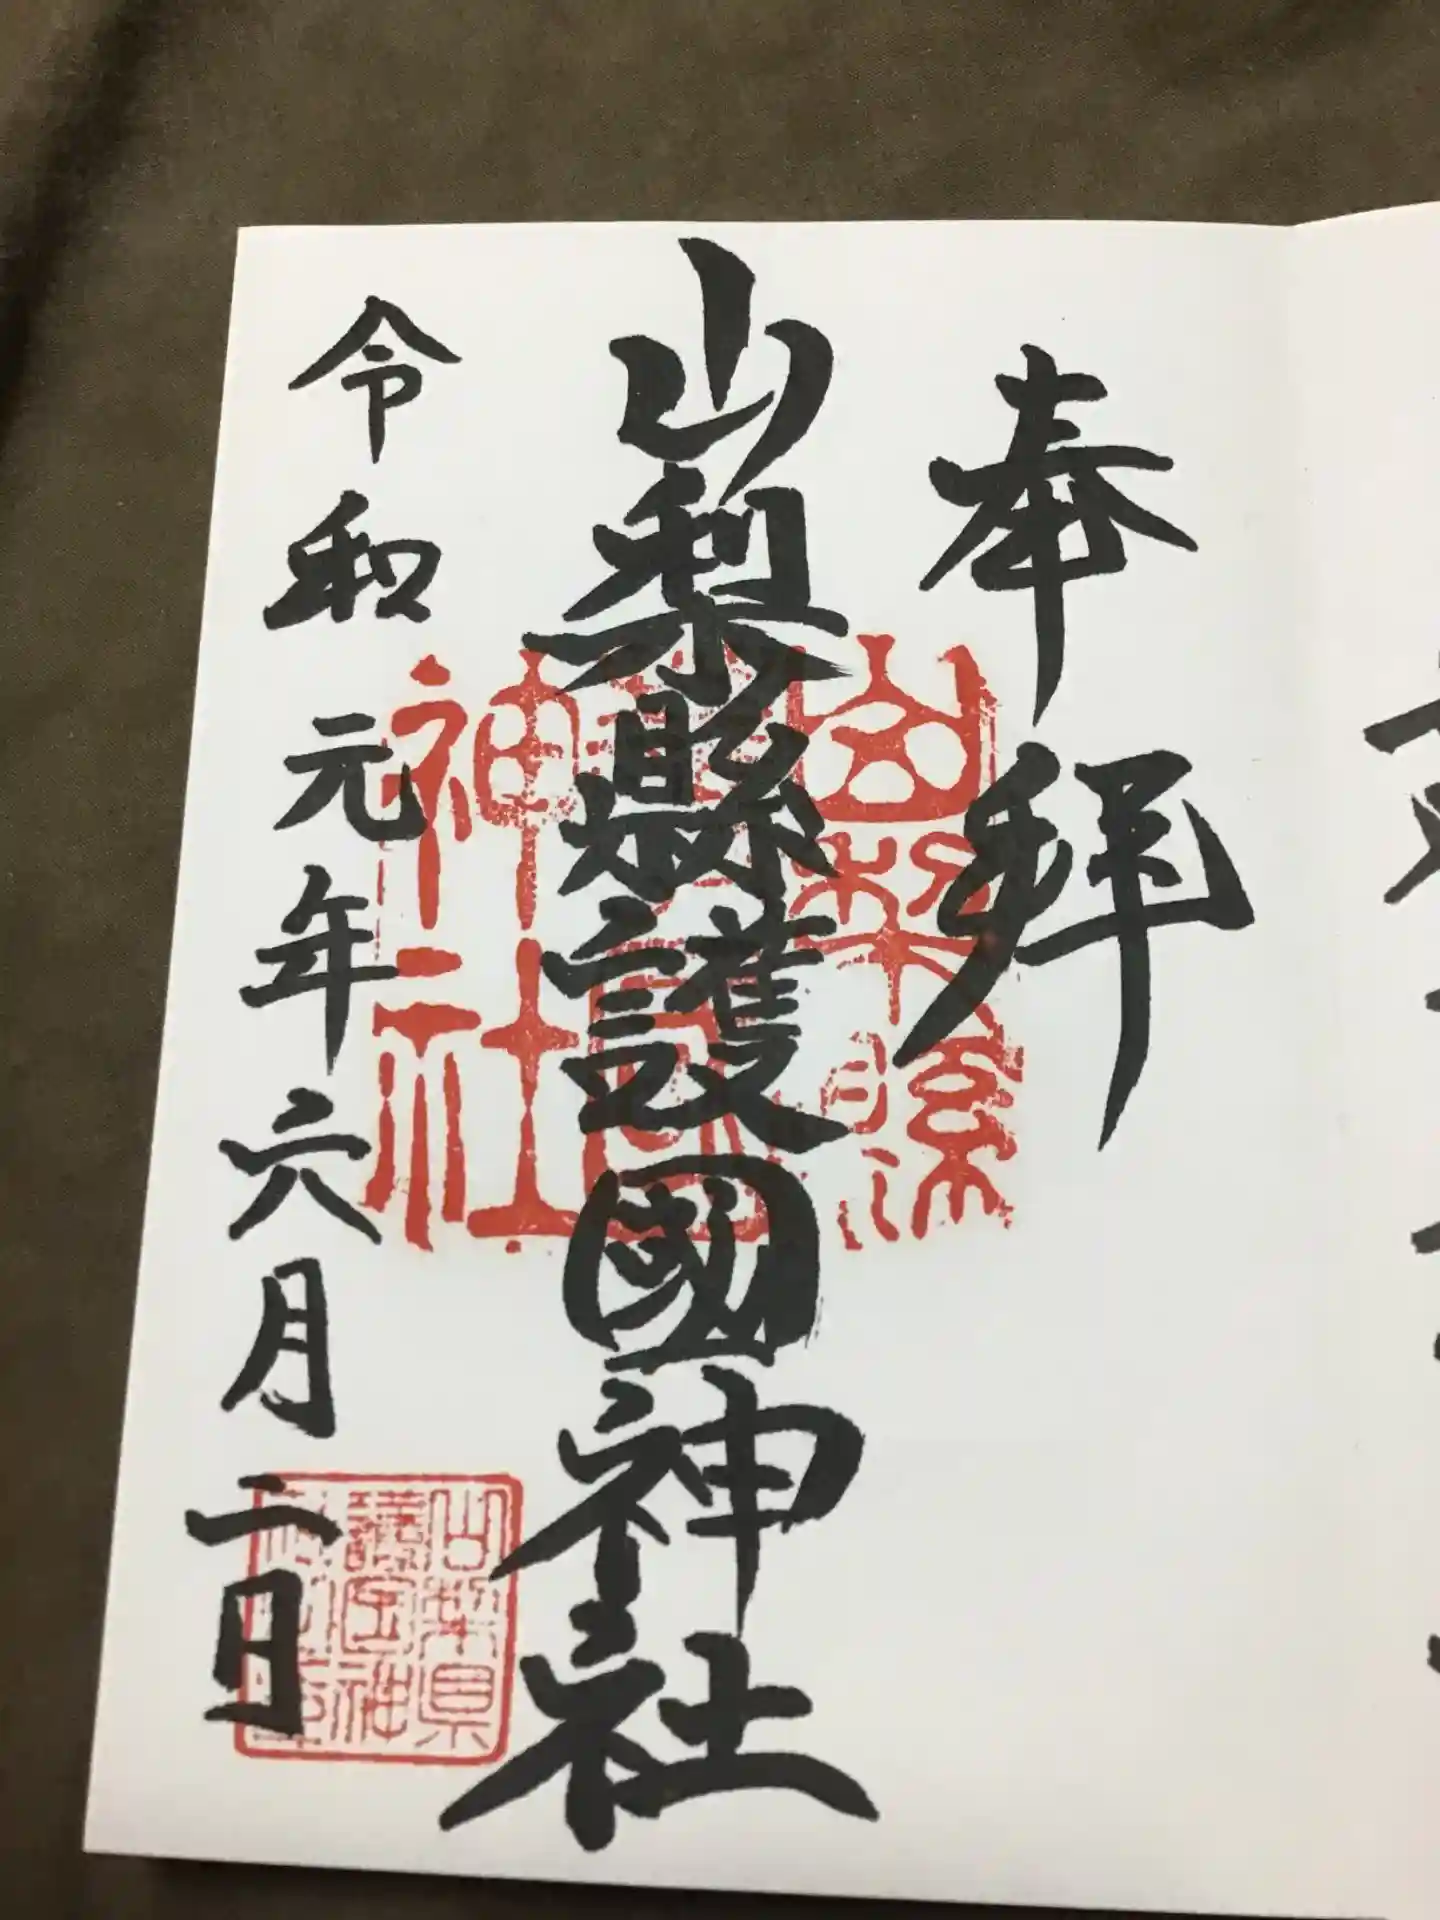 奉拜
山梨縣護國神社
令和元年六月二日
山梨縣護國神社
山梨県護国神社